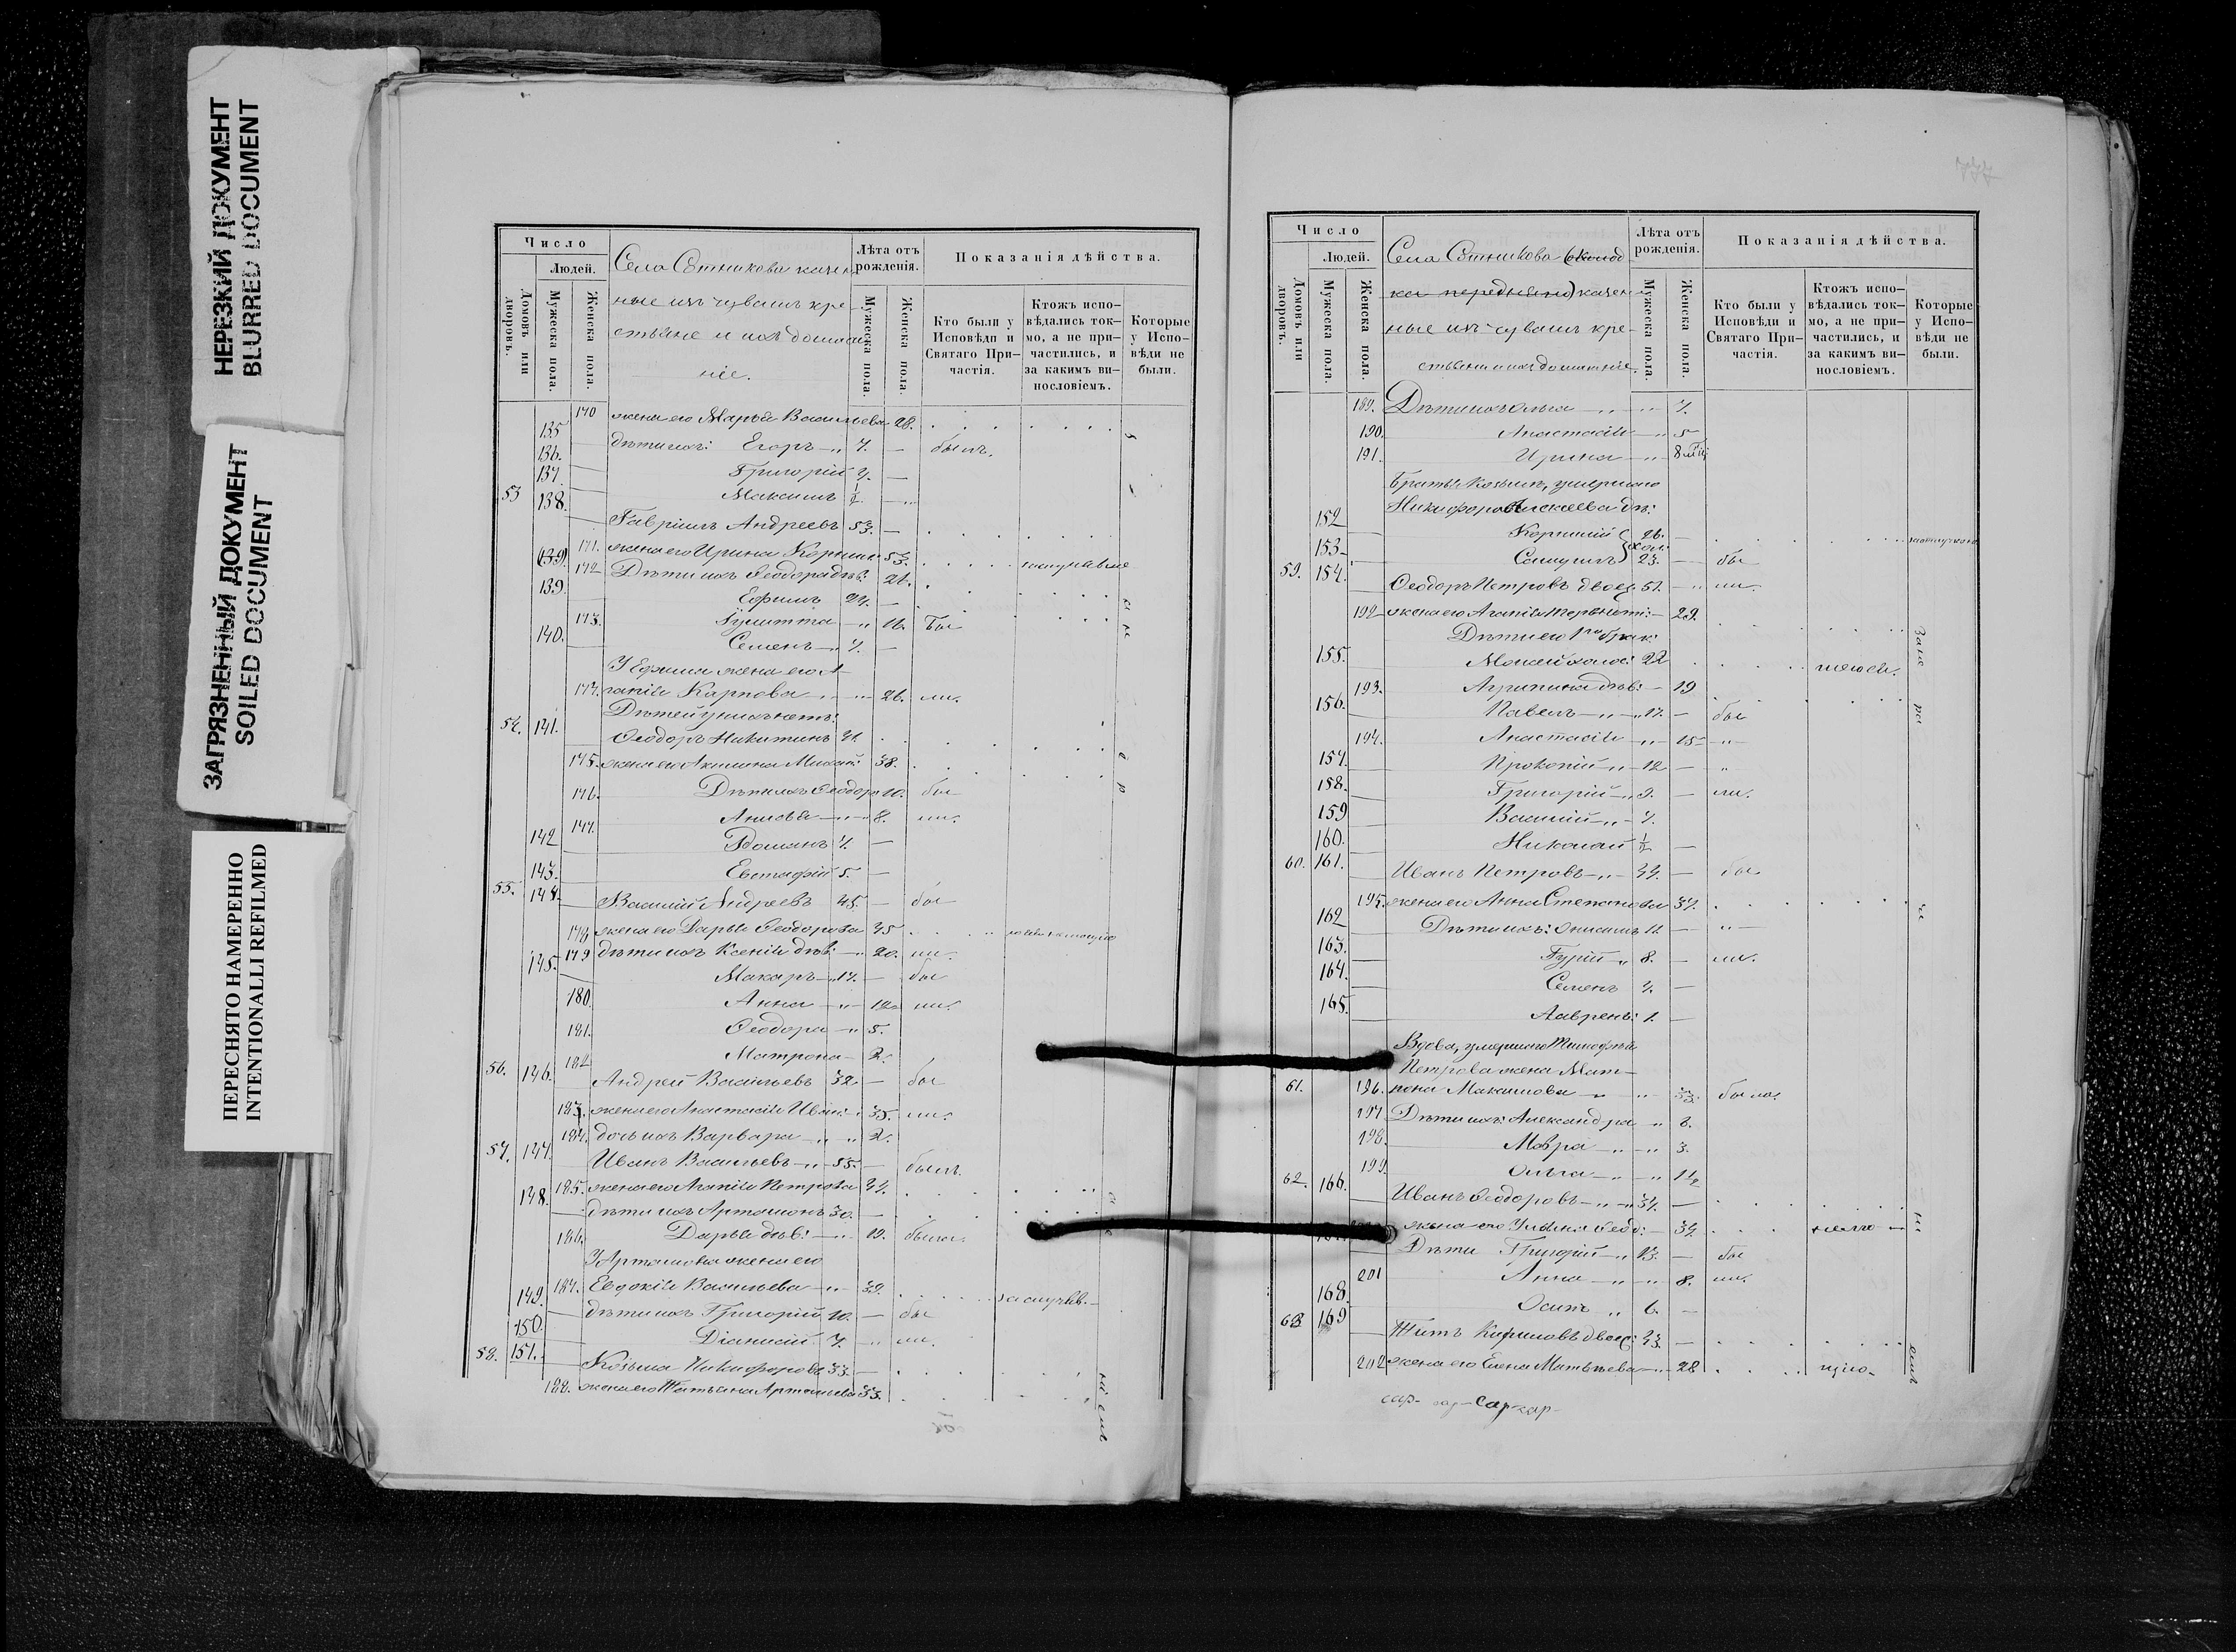 НЕРЕЗКИЙ ДОКУМЕНТ
BLURRED DOCUMENT
ЗАГРЯЗНЕННЫЙ ДОКУМЕНТ
SOILED DOCUMENT
ПЕРЕСНЯТО НАМЕРЕННО
INTENTIONALLI REFILMED
Число
Людей.
Домовъ или дворовъ.
Мужеска пола.
Женска пола.
Села Сотникова казен
ные изъ чувашъ кре-
стьяне и ихъ домаш
ніе.
Лѣта отъ рожденія.
Мужеска пола.
Женска пола.
Показанія дѣйства.
Кто были у Исповѣди и Святаго При-частія.
Ктожъ испо-вѣдались ток-мо, а не при-частились, и за какимъ ви-нословіемъ.
Которые у Испо-вѣди не были.
170 жена его Марья Васильева 28.
135
136. дѣти ихъ: Егоръ 7. — былъ.
137. Григорій
53 138. Максимъ ½
Гавріилъ Андреевъ 53. —
171. жена его Ирина 53.
172 Дѣти ихъ Ѳеодора дѣв: 21.
139. Ефимъ 24. —
173. Іулитта 16. Бы
140. Семенъ 7. —
У Ефима жена его А-
174. гапія Карпова 26. ли.
Дѣтей у нихъ нетъ:
54. 141. Ѳеодоръ Никитинъ
175. жена его Акилина 38.
176. Дѣти ихъ 10. бы
177. Анисья 8. ли.
142 Романъ 7. —
143. Евстафій 5. —
55. 144. Василій Андреевъ 45. — бы
178 жена его Дарья Ѳеодорова 45
179 дѣти ихъ Ксенія дѣв: 20. ли.
145. Макаръ 17. — бы
180. Анна 12 ли.
181. Ѳеодора 5.
182 Матрона 2.
56. 146. Андрей Васильевъ 32 — бы
183. жена его Анастасія Иван: 35. ли.
184. дочь ихъ Варвара 2.
57. 147. Иванъ Васильевъ 55. — былъ.
185. жена его Агапія Петрова
148. дѣти ихъ Артамонъ 30. —
186. Дарья дѣв: 19. была.
У Артамона жена его
187. Евдокія Васильева 39.
149. дѣти ихъ Григорій 10. — бы
150. Діанисій 7. ли.
58. 151. Козьма Никифоровъ 33. —
188. жена его Татьяна 33.
777
Число
Людей.
Домовъ или дворовъ.
Мужеска пола.
Женска пола.
Села Сотникова
казен
ные изъ чувашъ кре-
стьяне и ихъ домашніе.
Лѣта отъ рожденія.
Мужеска пола.
Женска пола.
Показанія дѣйства.
Кто были у Исповѣди и Святаго При-частія.
Ктожъ испо-вѣдались ток-мо, а не при-частились, и за какимъ ви-нословіемъ.
Которые у Испо-вѣди не были.
189. Дѣти ихъ Ольга 7.
190. Анастасія 5
191. Ирина 8
Братья Козьмы, умершаго
Никифора Алексеева дѣ:
152 Корнилій 26. —
153 Самуилъ хол: 23. — бы
59. 154. Ѳеодоръ Петровъ двое: 51. — ли.
192 жена его Агапія 29.
Дѣти его 1го брак:
155. Моисей холос: 22
193. Агрипина дѣв: — 19
156. Павелъ 17. — бы
194. Анастасія 15 —
157. Прокопій 12 —
158. Григорій 9. — ли.
159 Василій 7.
160. Николай ½ —
60. 161. Иванъ Петровъ 44. — бы
195. жена его Анна Степанова 37.
162 Дѣти ихъ: Онисимъ 12 —
163. Гурій 8. — ли.
164. Семенъ —
165. Лаврен: 1. —
Вдова, умершаго Тимофея
Петрова жена Мат-
61. 196. рона Максимова 33. была.
197. Дѣти ихъ: Александра 6.
198. Мавра 3.
199. Ольга 1½
62. 166. Иванъ Ѳеодоровъ 37. —
жена его Ѳеод: — 39.
Дѣти Григорій 13. — бы
201 Анна 8. ли.
168. Осипъ 6. —
63 169 Титъ Кириловъ двое: 43. —
202 жена его Елена Матвѣева 28
сар-